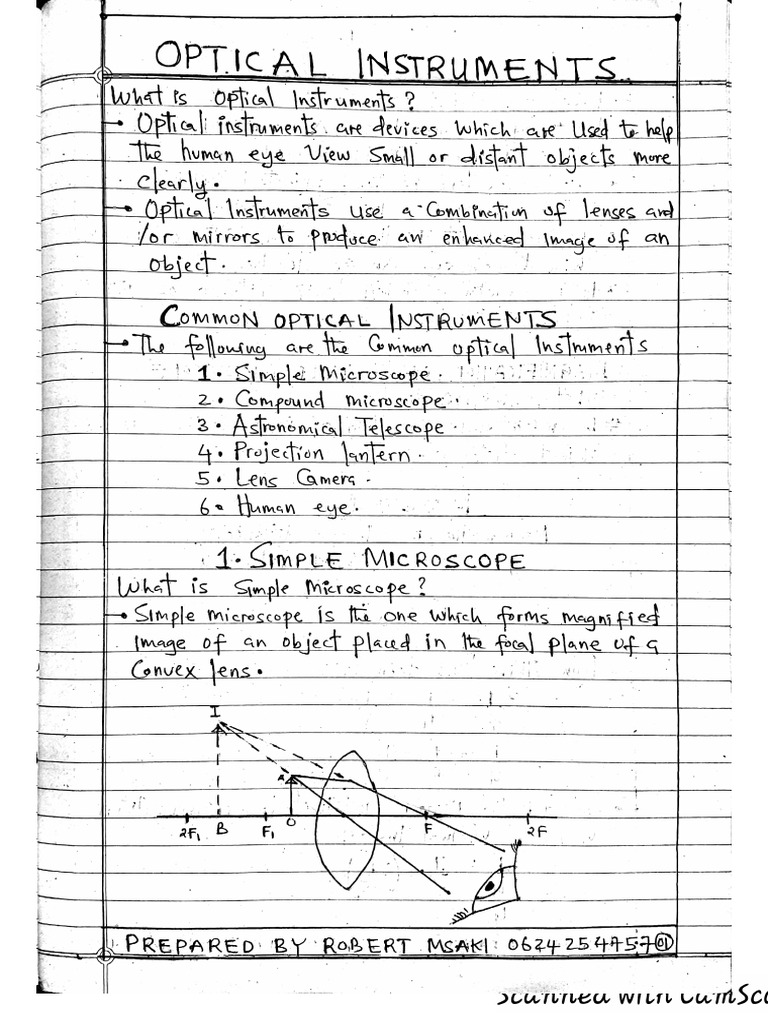 OPTICAL INSTRUMENTS
What is Optical Instruments?
• Optical instruments are devices which are Used to help
the human eye View Small or distant objects more
clearly.
• Optical Instruments use a Combination of lenses and
/or mirrors to produce an enhanced Image of an
object.
COMMON OPTICAL INSTRUMENTS
• The following are the Common optical Instruments
1. Simple Microscope.
2. Compound microscope.
3. Astronomical Telescope.
4. Projection lantern.
5. Lens Camera.
6. Human eye.
1. SIMPLE MICROSCOPE
What is Simple Microscope?
• Simple microscope is the one which forms magnified
Image of an object placed in the focal plane of a
Convex lens.
I
A
2F₁ B F₁ O F 2F
PREPARED BY ROBERT MSAKI: 0624254757 01
Scanned with CamSca